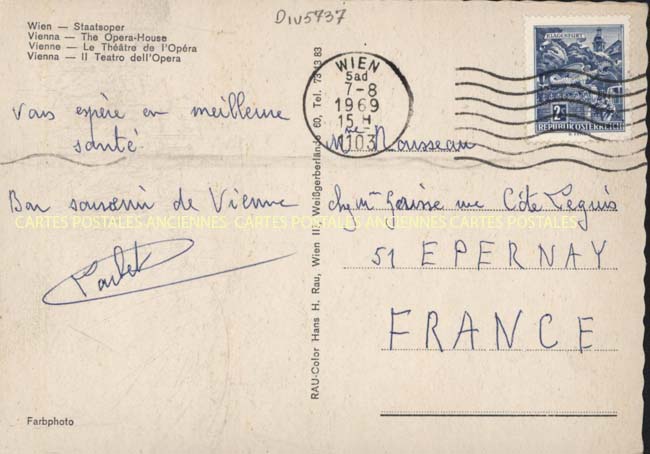 Div5737
Wien — Staatsoper
Vienna — The Opera-House
Vienne — Le Théâtre de l'Opéra
Vienna — Il Teatro dell'Opera
Vous espère en meilleure
santé.
Bon souvenir de Vienne
CARTES POSTALES ANCIENNES CARTES POSTALES ANCIENNES CARTES POSTALES
Farbphoto
RAU-Color Hans H. Rau, Wien III, Weißgerberlände 60, Tel. 73 13 83
WIEN
5ad
7-8
1969
15 H
1103
KLAGENFURT
2S
REPUBLIK ÖSTERREICH
Mme Rousseau
rue Côte Leguis
51 EPERNAY
FRANCE